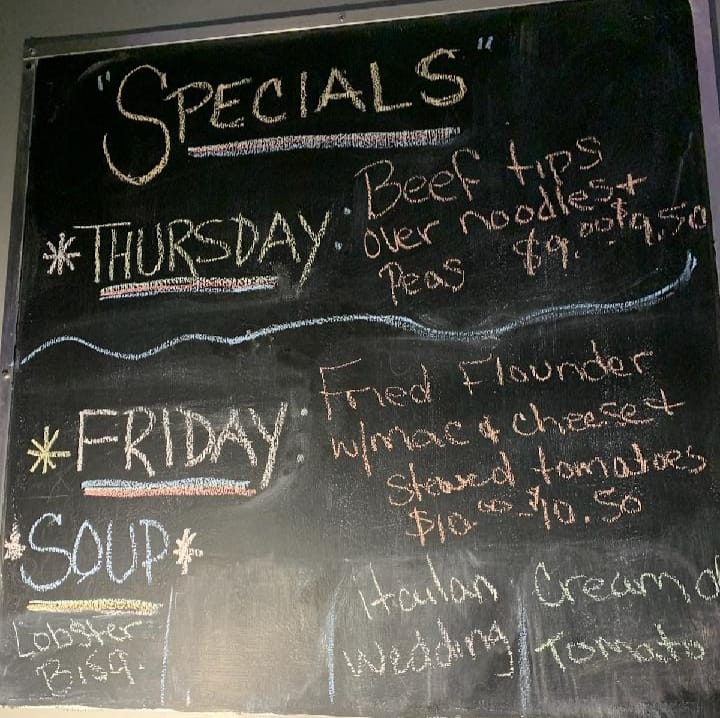 "SPECIALS"
*THURSDAY:
Beef tips
over noodles +
Peas $9.00 $9.50
*FRIDAY:
Fried Flounder
w/mac & cheese +
stewed tomatoes
$10.00-$10.50
*SOUP*
Lobster
Bisq.
Itailan
Wedding
Cream o
Tomato